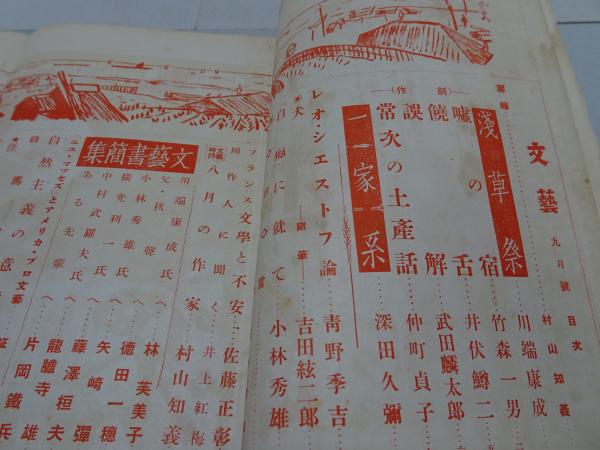 文藝 九月號 目次
村山知義
淺草祭 川端康成
嘘の宿 竹森一男
饒舌 井伏鱒二
誤解 武田麟太郎
常次の土產話 仲町貞子
(創作)
一家系 深田久彌
レオ・シエストフ論 靑野季吉
吉田絃二郎
白痴に就て 小林秀雄
フランス文學と不安 佐藤正彰
周作人に聞く 井上紅梅
文藝時評 八月の作家 村山知義
文藝書簡集
川端康成氏へ 林芙美子
父・秋聲へ 德田一穗
小林秀雄氏へ 矢崎彈
橫光利一氏へ 藤澤桓夫
中村武羅夫氏へ 龍膽寺雄
ある先輩へ 片岡鐵兵
ニュー・マッセズとアメリカ・プロ文藝
自然主義の